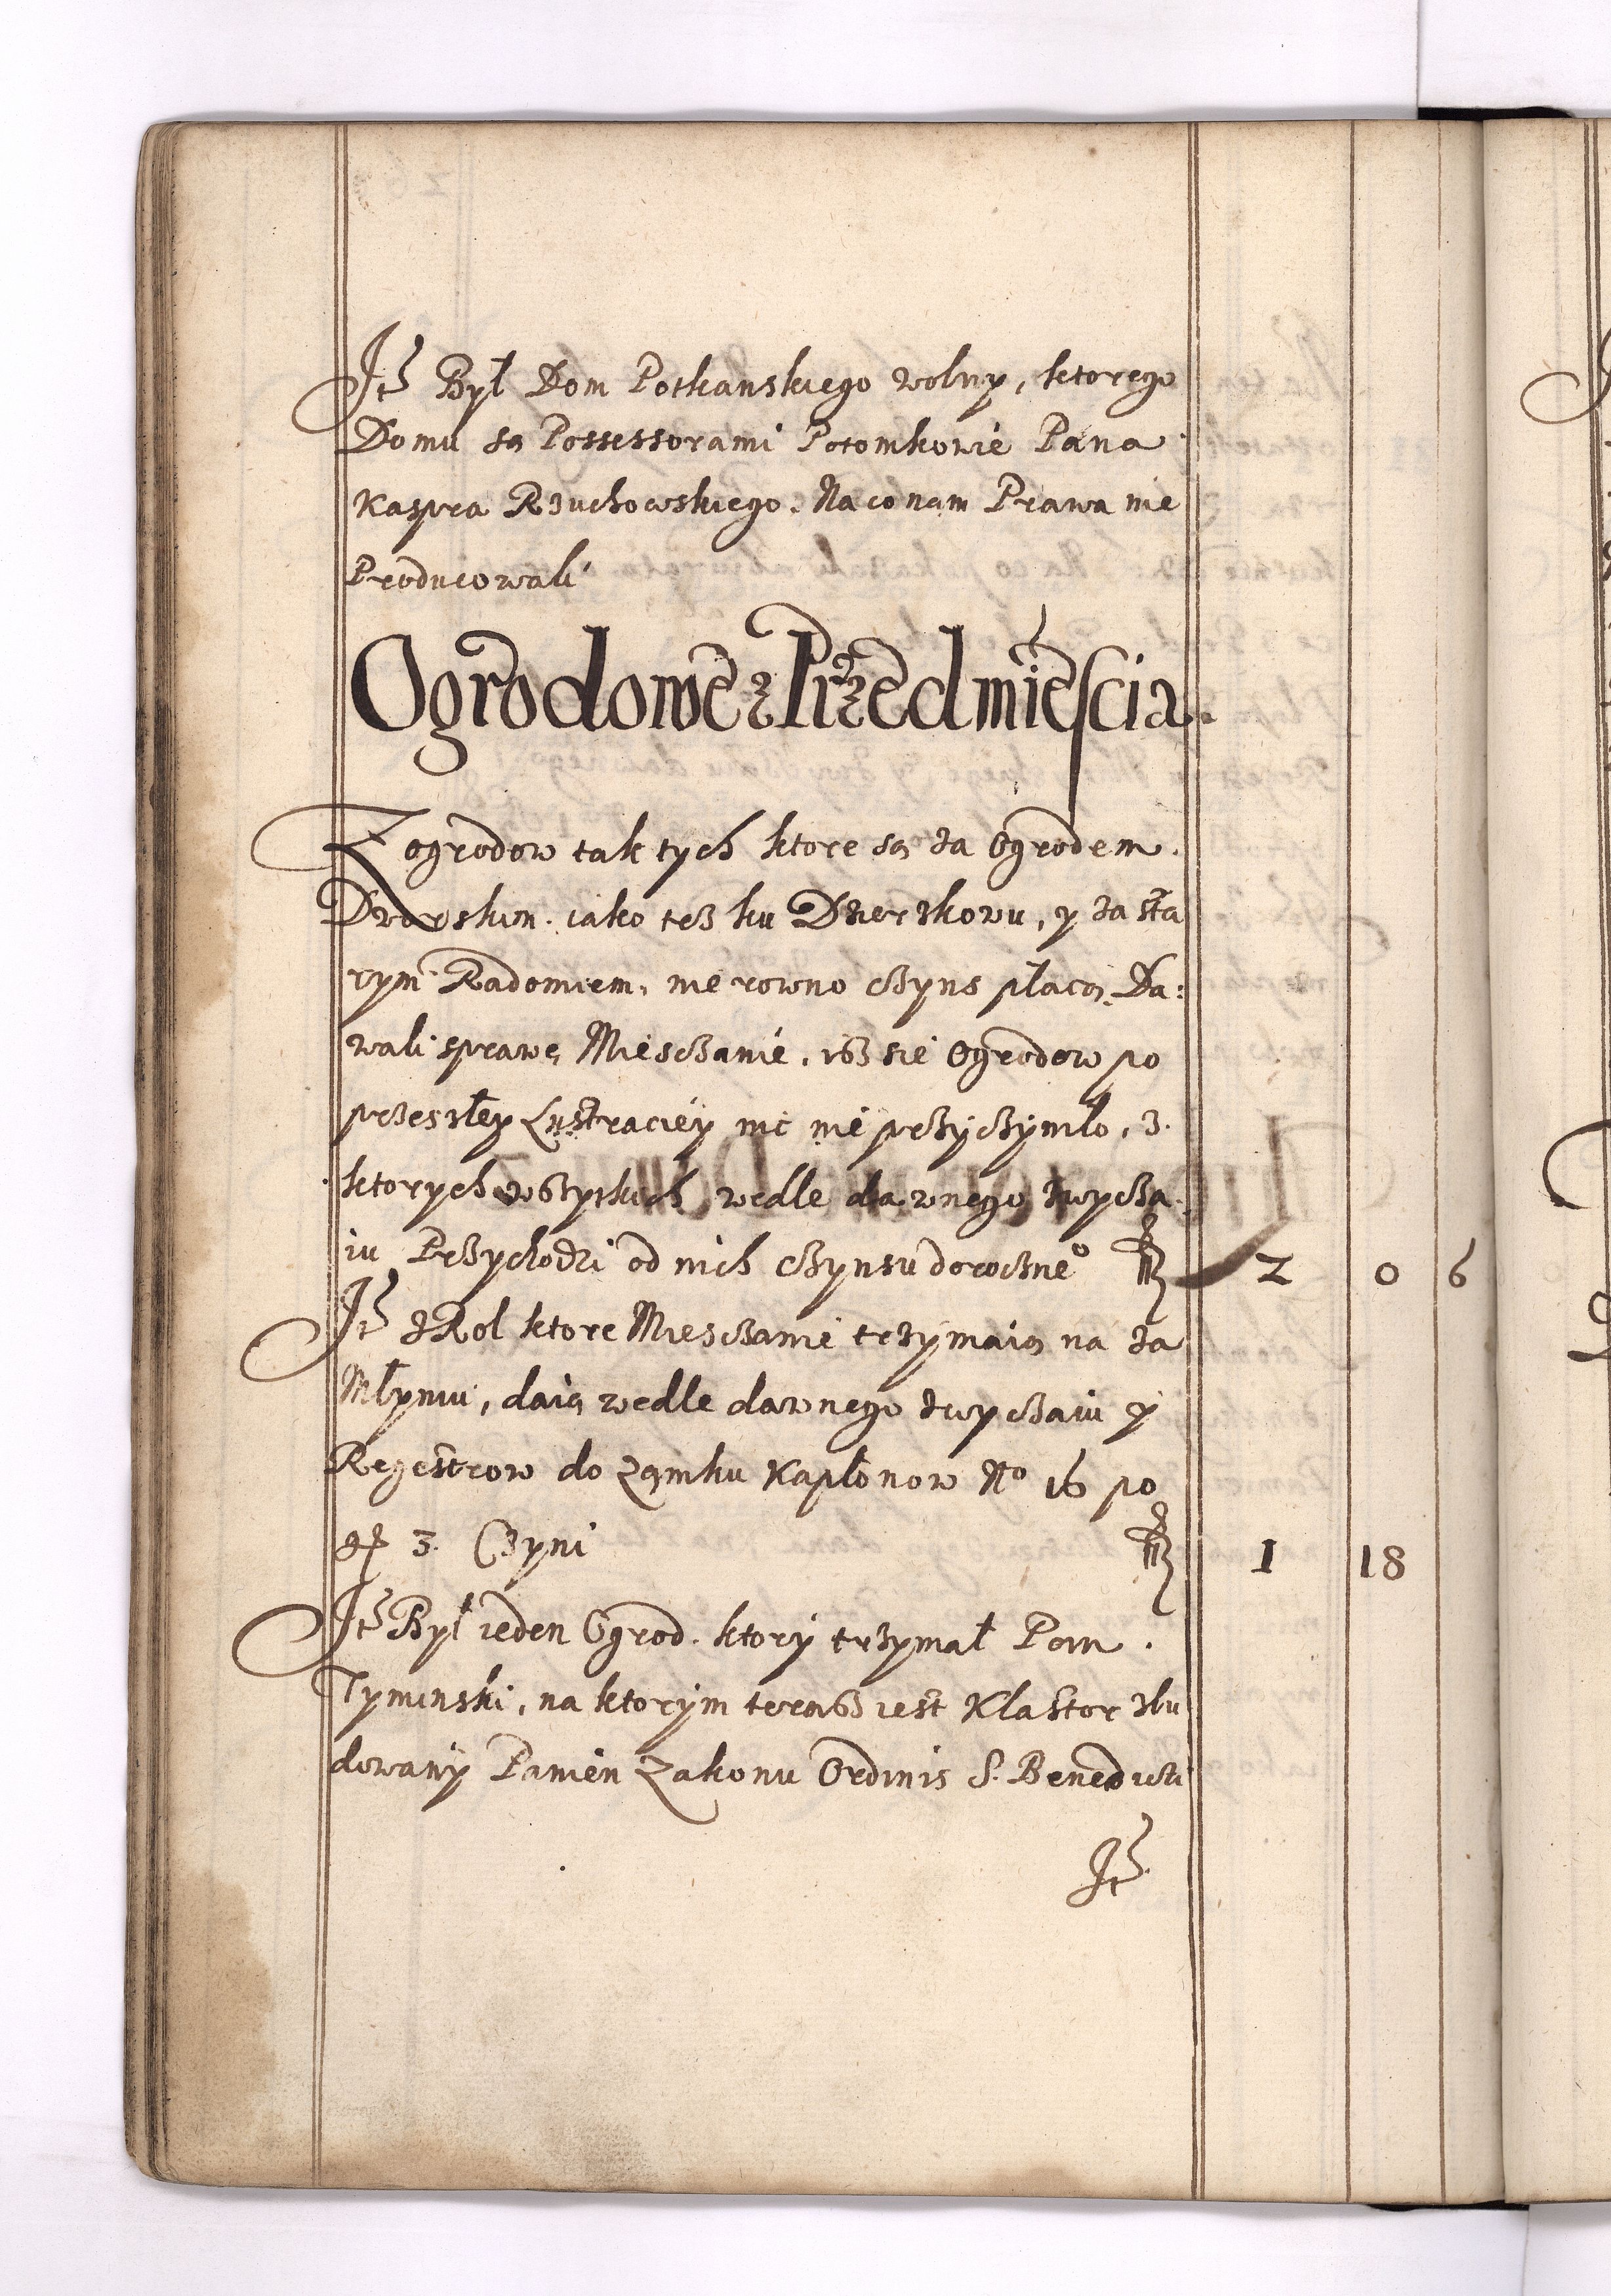 Itẽ Był Dom Potkanskiego wolny, ktorego
Domu są Possessorami Potomkowie Pana
Kaspra Rzuchowskiego. Na co nam Prawa nie
Producowali
Ogrodowe z Przedmiescia.
Z ogrodow tak tych ktore są za Ogrodem
Dworskim. iako tesz ku Dzierzkowu, y za sta
rym Radomiem, nie rowno czyns płacą. Da:
wali sprawę Miesczanie, isz sie Ogrodow po
przeszłey Lustraciey nic nie przyczyniło, z
ktorych wszytkich wedle dawnego zwycza
iu Przychodzi od nich czynsu doroczneº 2 0 6
Itẽ z Rol ktore Miesczanie trzymaią na za
Młyniu, daią wedle dawnego zwyczaiu y
Regestrow do Zamku Kapłonow Nº 16 po
gr 3. Czyni 1 18
Itẽ Był ieden Ogrod. ktory trzymał Pan
Tyminski, na ktorym terasz iest Klastor zbu
dowany Panien Zakonu Ordinis S. Benedicti
Itẽ